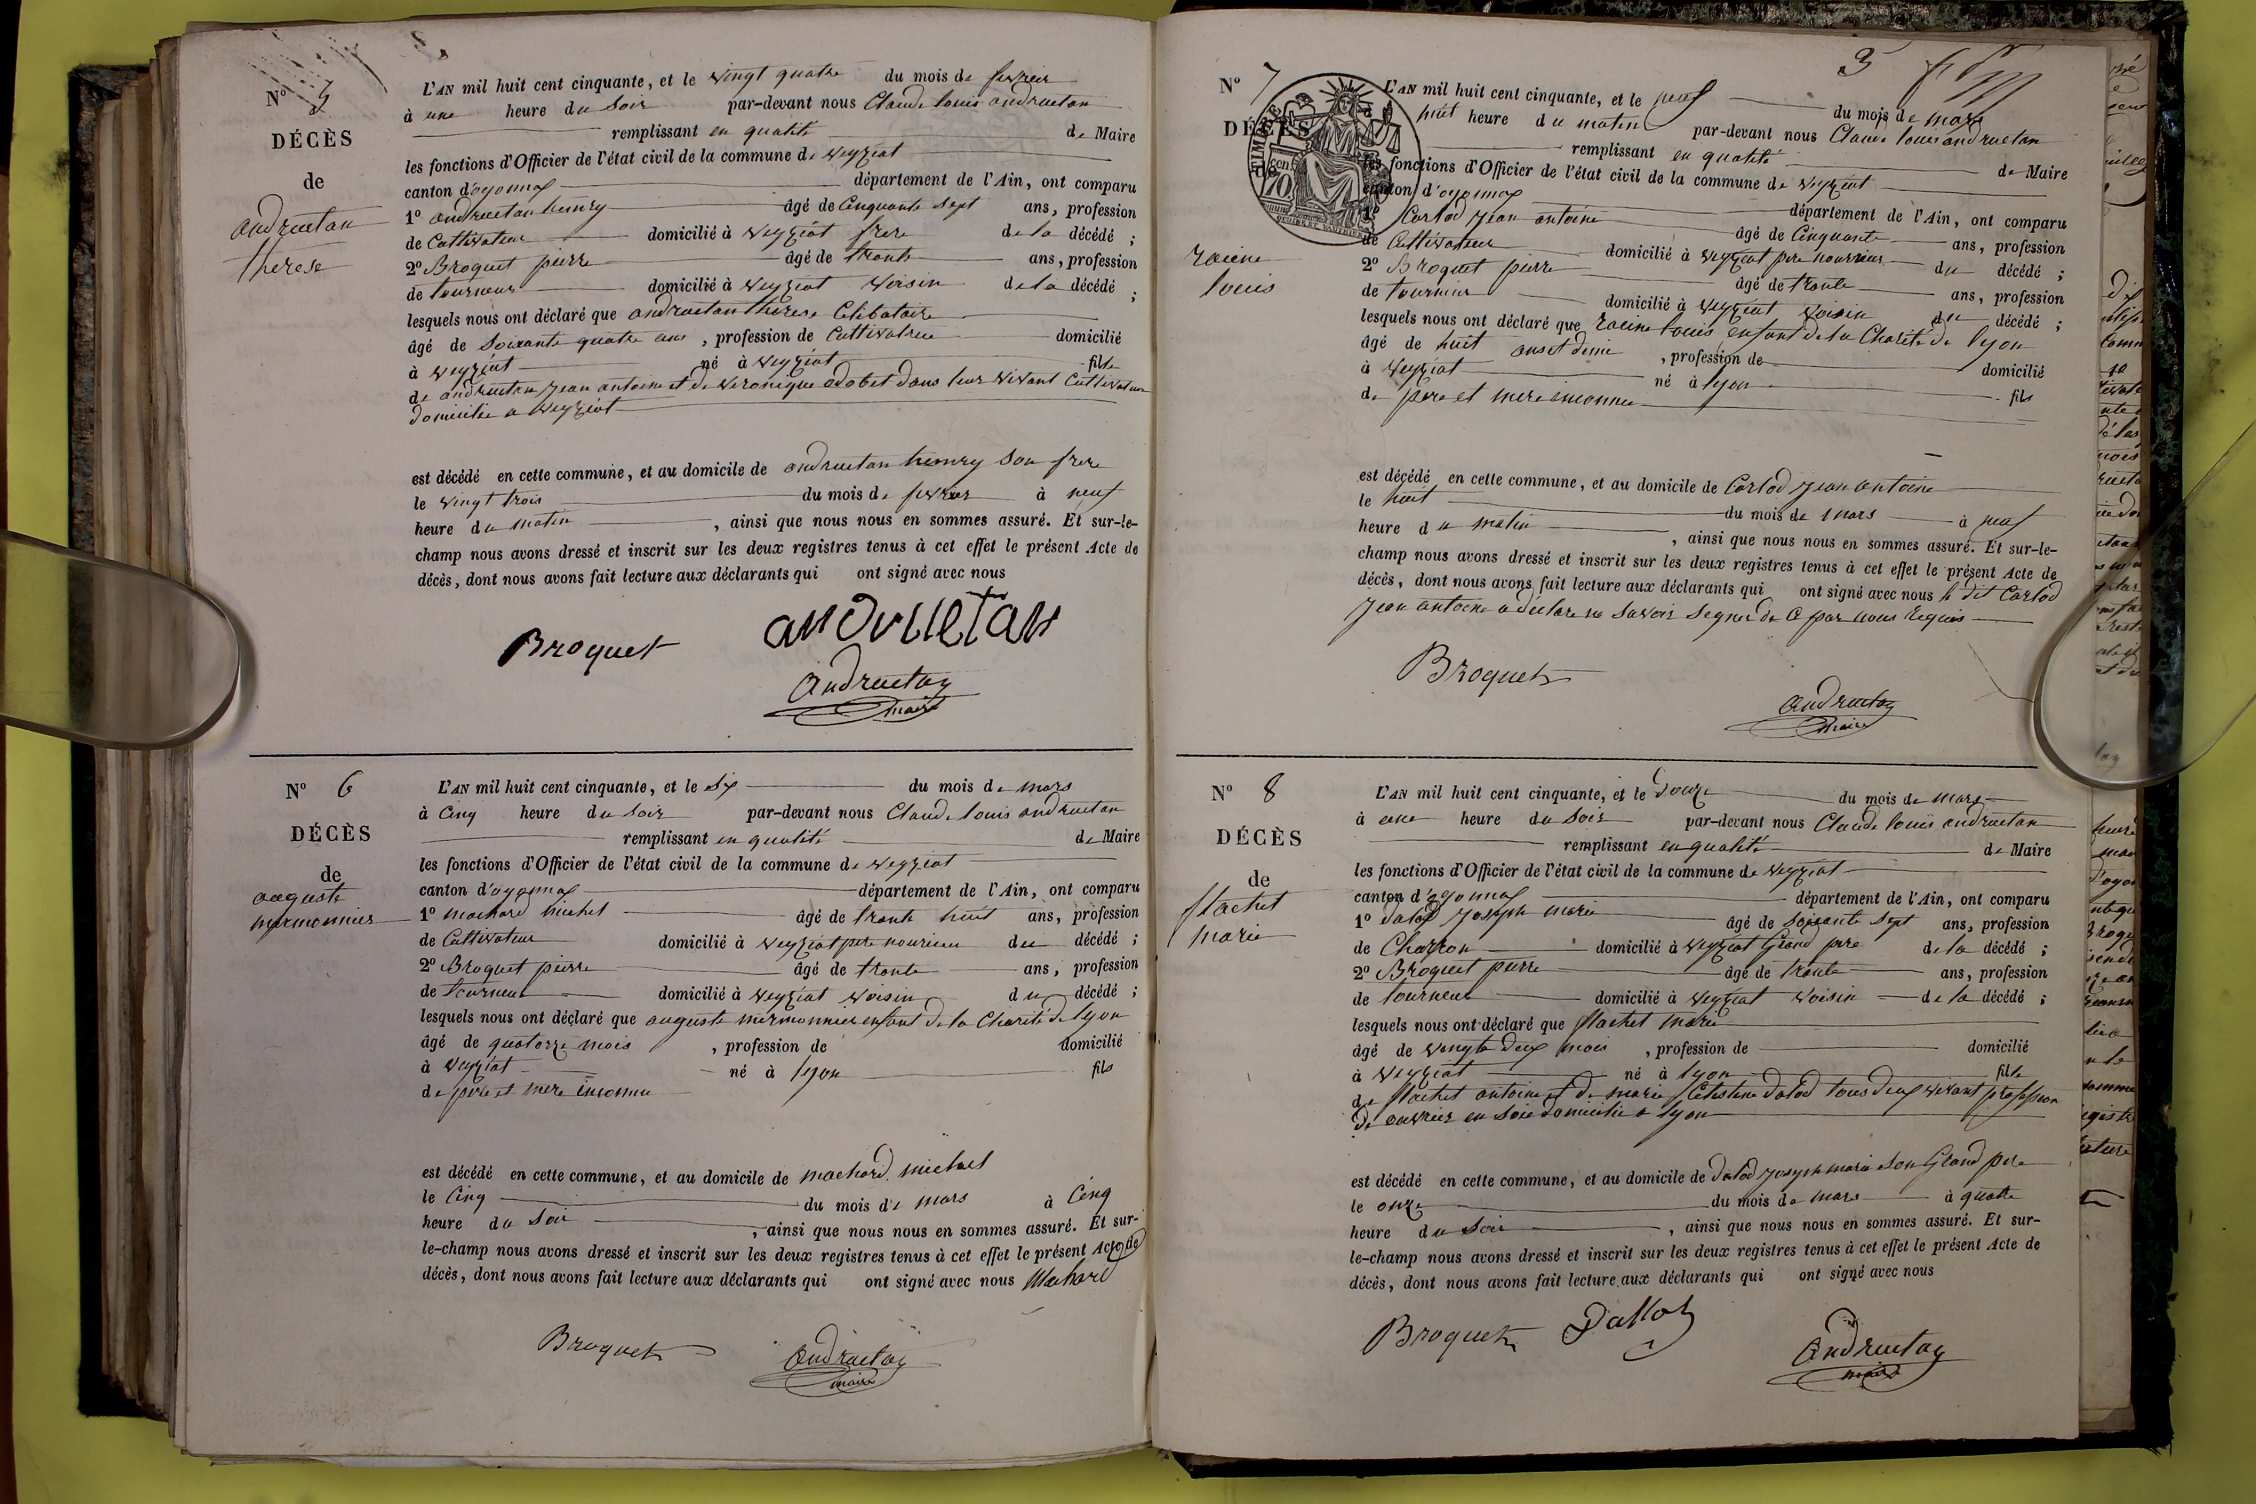 Nº 5
DÉCÈS
de
andruetan
therese
L'AN mil huit cent cinquante, et le vingt quatre du mois de fevrier
à une heure du soir par-devant nous Claude louis andruetan
remplissant en qualité de Maire
les fonctions d'Officier de l'état civil de la commune de veyziat
canton d'oyonnax département de l'Ain, ont comparu
1º andruetan henry âgé de Cinquante sept ans, profession
de Cultivateur domicilié à veyziat frere de la décédé ;
2º Broquet pierre âgé de trente ans, profession
de tourneur domicilié à veyziat voisin de la décédé ;
lesquels nous ont déclaré que andruetan therese Celibataire
âgé de soixante quatre ans , profession de Cultivatrice domicilié
à veyziat né à veyziat fille
de andruetan jean antoine et de veronique odobet dans leur vivant Cultivateur
domicilie a veyziat
est décédé en cette commune, et au domicile de andruetan henry son frere
le vingt trois du mois de fevrier à neuf
heure du matin , ainsi que nous nous en sommes assuré. Et sur-le-
champ nous avons dressé et inscrit sur les deux registres tenus à cet effet le présent Acte de
décès, dont nous avons fait lecture aux déclarants qui ont signé avec nous
Broquet andruetan
Andruetan
maire
Nº 6
DÉCÈS
de
auguste
mermonnier
L'AN mil huit cent cinquante, et le six du mois de mars
à Cinq heure du soir par-devant nous Claude louis andruetan
remplissant en qualité de Maire
les fonctions d'Officier de l'état civil de la commune de veyziat
canton d'oyonnax département de l'Ain, ont comparu
1º machard michel âgé de trente huit ans, profession
de Cultivateur domicilié à veyziat pere nouricier du décédé ;
2º Broquet pierre âgé de trente ans, profession
de tourneur domicilié à veyziat voisin du décédé ;
lesquels nous ont déclaré que auguste mermonnier enfant de la Charité de lyon
âgé de quatorze mois , profession de domicilié
à veyziat né à lyon fils
de pere et mere inconnu
est décédé en cette commune, et au domicile de machard michel
le Cinq du mois de mars à Cinq
heure du soir , ainsi que nous nous en sommes assuré. Et sur-
le-champ nous avons dressé et inscrit sur les deux registres tenus à cet effet le présent Acte de
décès, dont nous avons fait lecture aux déclarants qui ont signé avec nous Machard
Broquet Andruetan
maire
3
Nº 7
DÉCÈS
racine
louis
L'AN mil huit cent cinquante, et le neuf du mois de mars
huit heure du matin par-devant nous Claude louis andruetan
remplissant en qualité de Maire
les fonctions d'Officier de l'état civil de la commune de veyziat
canton d'oyonnax département de l'Ain, ont comparu
1º Carlod jean antoine âgé de Cinquante ans, profession
de Cultivateur domicilié à veyziat pere nourricier du décédé ;
2º Broquet pierre âgé de trente ans, profession
de tourneur domicilié à veyziat voisin du décédé ;
lesquels nous ont déclaré que racine louis enfant de la Charité de lyon
âgé de huit ans et demie , profession de domicilié
à veyziat né à lyon fils
de pere et mere inconnu
est décédé en cette commune, et au domicile de Carlod jean antoine
le huit du mois de mars à neuf
heure du matin , ainsi que nous nous en sommes assuré. Et sur-le-
champ nous avons dressé et inscrit sur les deux registres tenus à cet effet le présent Acte de
décès, dont nous avons fait lecture aux déclarants qui ont signé avec nous le dit Carlod
jean antoine a declare ne savoir signer de Ce par nous requis
Broquet
Andruetan
maire
Nº 8
DÉCÈS
de
flachet
marie
L'AN mil huit cent cinquante, et le douze du mois de mars
à une heure du soir par-devant nous Claude louis andruetan
remplissant en qualité de Maire
les fonctions d'Officier de l'état civil de la commune de veyziat
canton d'oyonnax département de l'Ain, ont comparu
1º dalod joseph marie âgé de soixante sept ans, profession
de Charron domicilié à veyziat Grand pere de la décédé ;
2º Broquet pierre âgé de trente ans, profession
de tourneur domicilié à veyziat voisin de la décédé ;
lesquels nous ont déclaré que flachet marie
âgé de vingt deux mois , profession de domicilié
à veyziat né à lyon fille
de flachet antoine et de marie Celestine dalod tous deux vivant profession
de ouvrier en soie domicilie a lyon
est décédé en cette commune, et au domicile de dalod joseph marie son Grand pere
le onze du mois de mars à quatre
heure du soir , ainsi que nous nous en sommes assuré. Et sur-
le-champ nous avons dressé et inscrit sur les deux registres tenus à cet effet le présent Acte de
décès, dont nous avons fait lecture aux déclarants qui ont signé avec nous
Broquet Dallod
Andruetan
maire